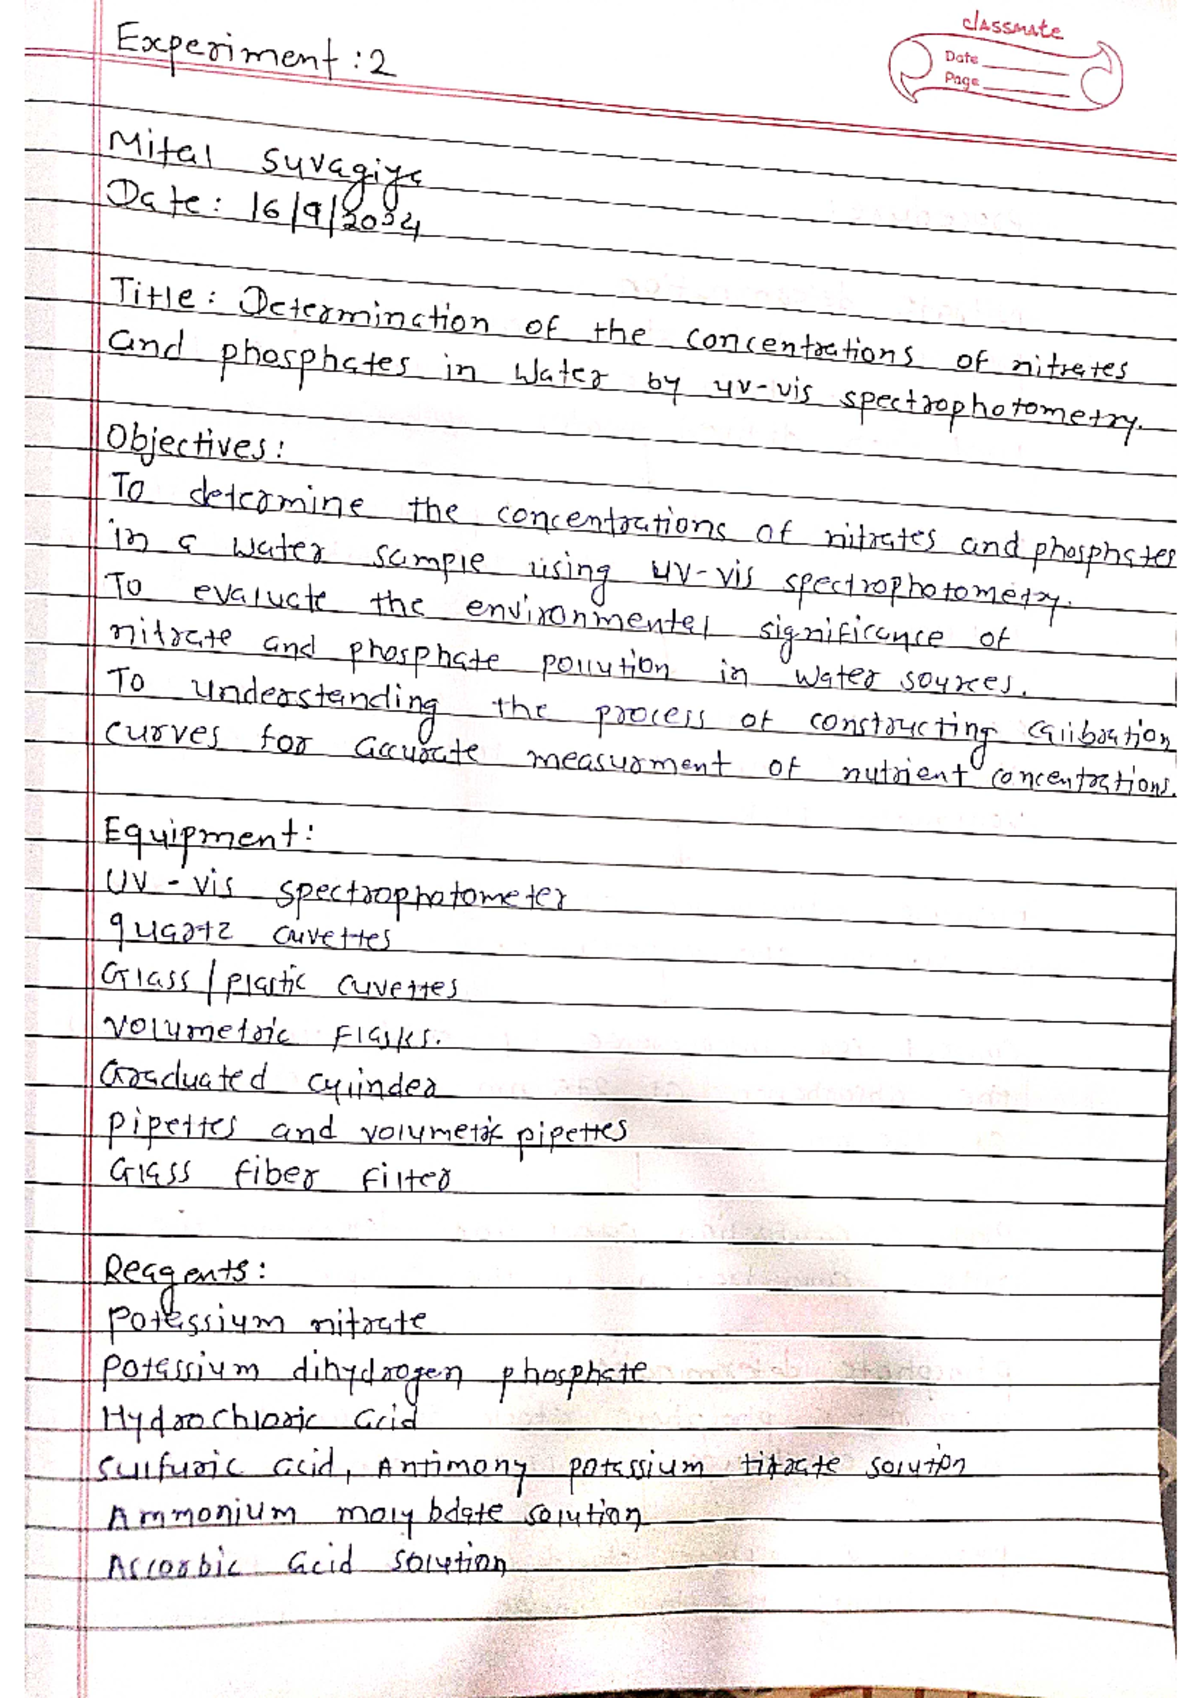 classmate
Date
Page
Experiment : 2
Mital Suvagiya
Date : 16/9/2024
Title : Determination of the concentrations of nitrates
and phosphates in water by uv-vis spectrophotometry.
Objectives :
To determine the concentrations of nitrates and phosphates
in a water sample using UV-vis spectrophotometry.
To evaluate the environmental significance of
nitrate and phosphate pollution in water sources.
To understanding the process of constructing calibration
curves for accurate measurment of nutrient concentrations.
Equipment :
UV-vis spectrophotometer
quartz cuvettes
Glass/plastic cuvettes
volumetric flasks.
Graduated cylinder
pipettes and volumetric pipettes
Glass fiber filter
Reagents :
potassium nitrate
potassium dihydrogen phosphate
Hydrochloric acid
sulfuric acid, Antimony potassium titrate solution
Ammonium molybdate solution
Ascorbic acid solution